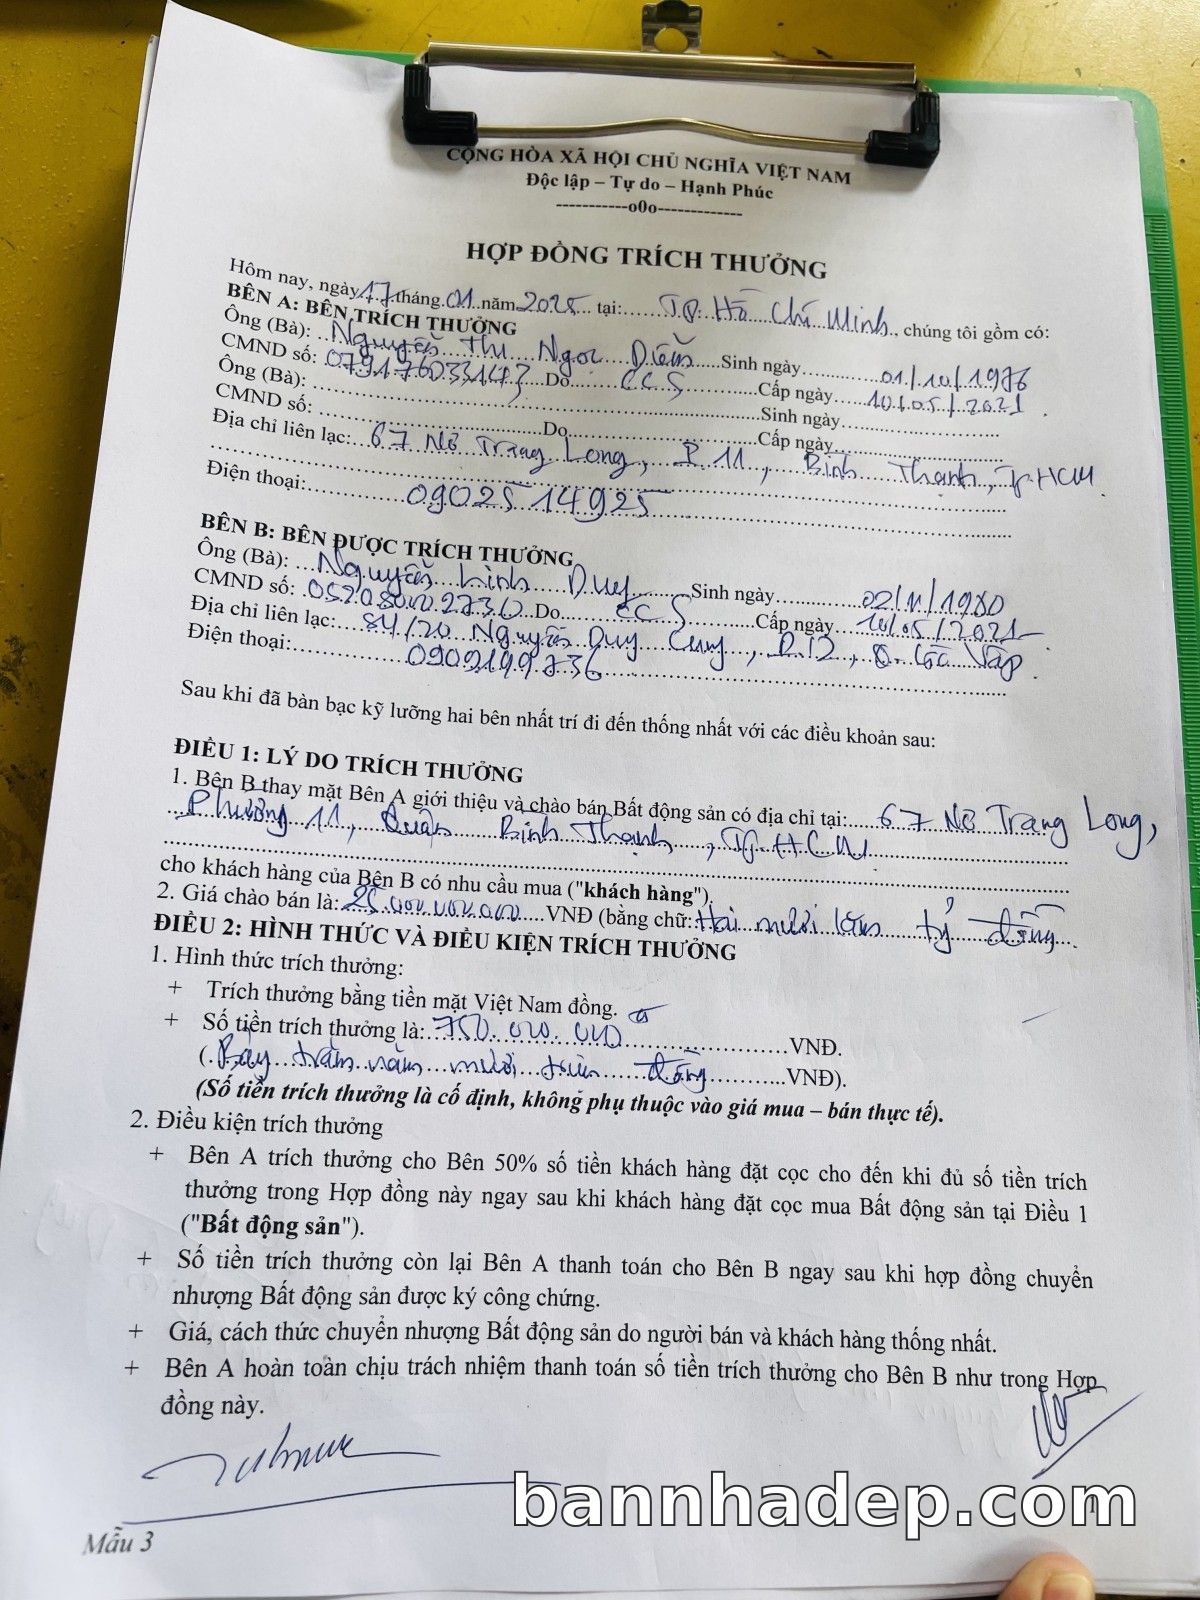 CỘNG HÒA XÃ HỘI CHỦ NGHĨA VIỆT NAM
Độc lập – Tự do – Hạnh Phúc
-----------o0o-------------
HỢP ĐỒNG TRÍCH THƯỞNG
Hôm nay, ngày 17 tháng 01 năm 2025 tại: TP. Hồ Chí Minh, chúng tôi gồm có:
BÊN A: BÊN TRÍCH THƯỞNG
Ông (Bà): Nguyễn Thị Ngọc Diễm Sinh ngày 01/10/1976
CMND số: 079176033143 Do CCS Cấp ngày 10/05/2021
Ông (Bà): Sinh ngày
CMND số: Do Cấp ngày
Địa chỉ liên lạc: 67 Nơ Trang Long, P. 11, Bình Thạnh, Tp. HCM
Điện thoại: 0902514925
BÊN B: BÊN ĐƯỢC TRÍCH THƯỞNG
Ông (Bà): Nguyễn Linh Duy Sinh ngày 02/11/1980
CMND số: Do CCS Cấp ngày 10/05/2021
Địa chỉ liên lạc: 84/20 Nguyễn Duy Cung, P.12, Q. Gò Vấp
Điện thoại: 0909199736
Sau khi đã bàn bạc kỹ lưỡng hai bên nhất trí đi đến thống nhất với các điều khoản sau:
ĐIỀU 1: LÝ DO TRÍCH THƯỞNG
1. Bên B thay mặt Bên A giới thiệu và chào bán Bất động sản có địa chỉ tại: 67 Nơ Trang Long,
Phường 11, Quận Bình Thạnh, Tp. HCM
cho khách hàng của Bên B có nhu cầu mua ("khách hàng").
2. Giá chào bán là: 25.000.000.000 VNĐ (bằng chữ: Hai mươi lăm tỷ đồng
ĐIỀU 2: HÌNH THỨC VÀ ĐIỀU KIỆN TRÍCH THƯỞNG
1. Hình thức trích thưởng:
+ Trích thưởng bằng tiền mặt Việt Nam đồng.
+ Số tiền trích thưởng là: 750.000.000 VNĐ.
(Bảy trăm năm mươi triệu đồng VNĐ).
(Số tiền trích thưởng là cố định, không phụ thuộc vào giá mua – bán thực tế).
2. Điều kiện trích thưởng
+ Bên A trích thưởng cho Bên 50% số tiền khách hàng đặt cọc cho đến khi đủ số tiền trích
thưởng trong Hợp đồng này ngay sau khi khách hàng đặt cọc mua Bất động sản tại Điều 1
("Bất động sản").
+ Số tiền trích thưởng còn lại Bên A thanh toán cho Bên B ngay sau khi hợp đồng chuyển
nhượng Bất động sản được ký công chứng.
+ Giá, cách thức chuyển nhượng Bất động sản do người bán và khách hàng thống nhất.
+ Bên A hoàn toàn chịu trách nhiệm thanh toán số tiền trích thưởng cho Bên B như trong Hợp
đồng này.
bannhadep.com
Mẫu 3